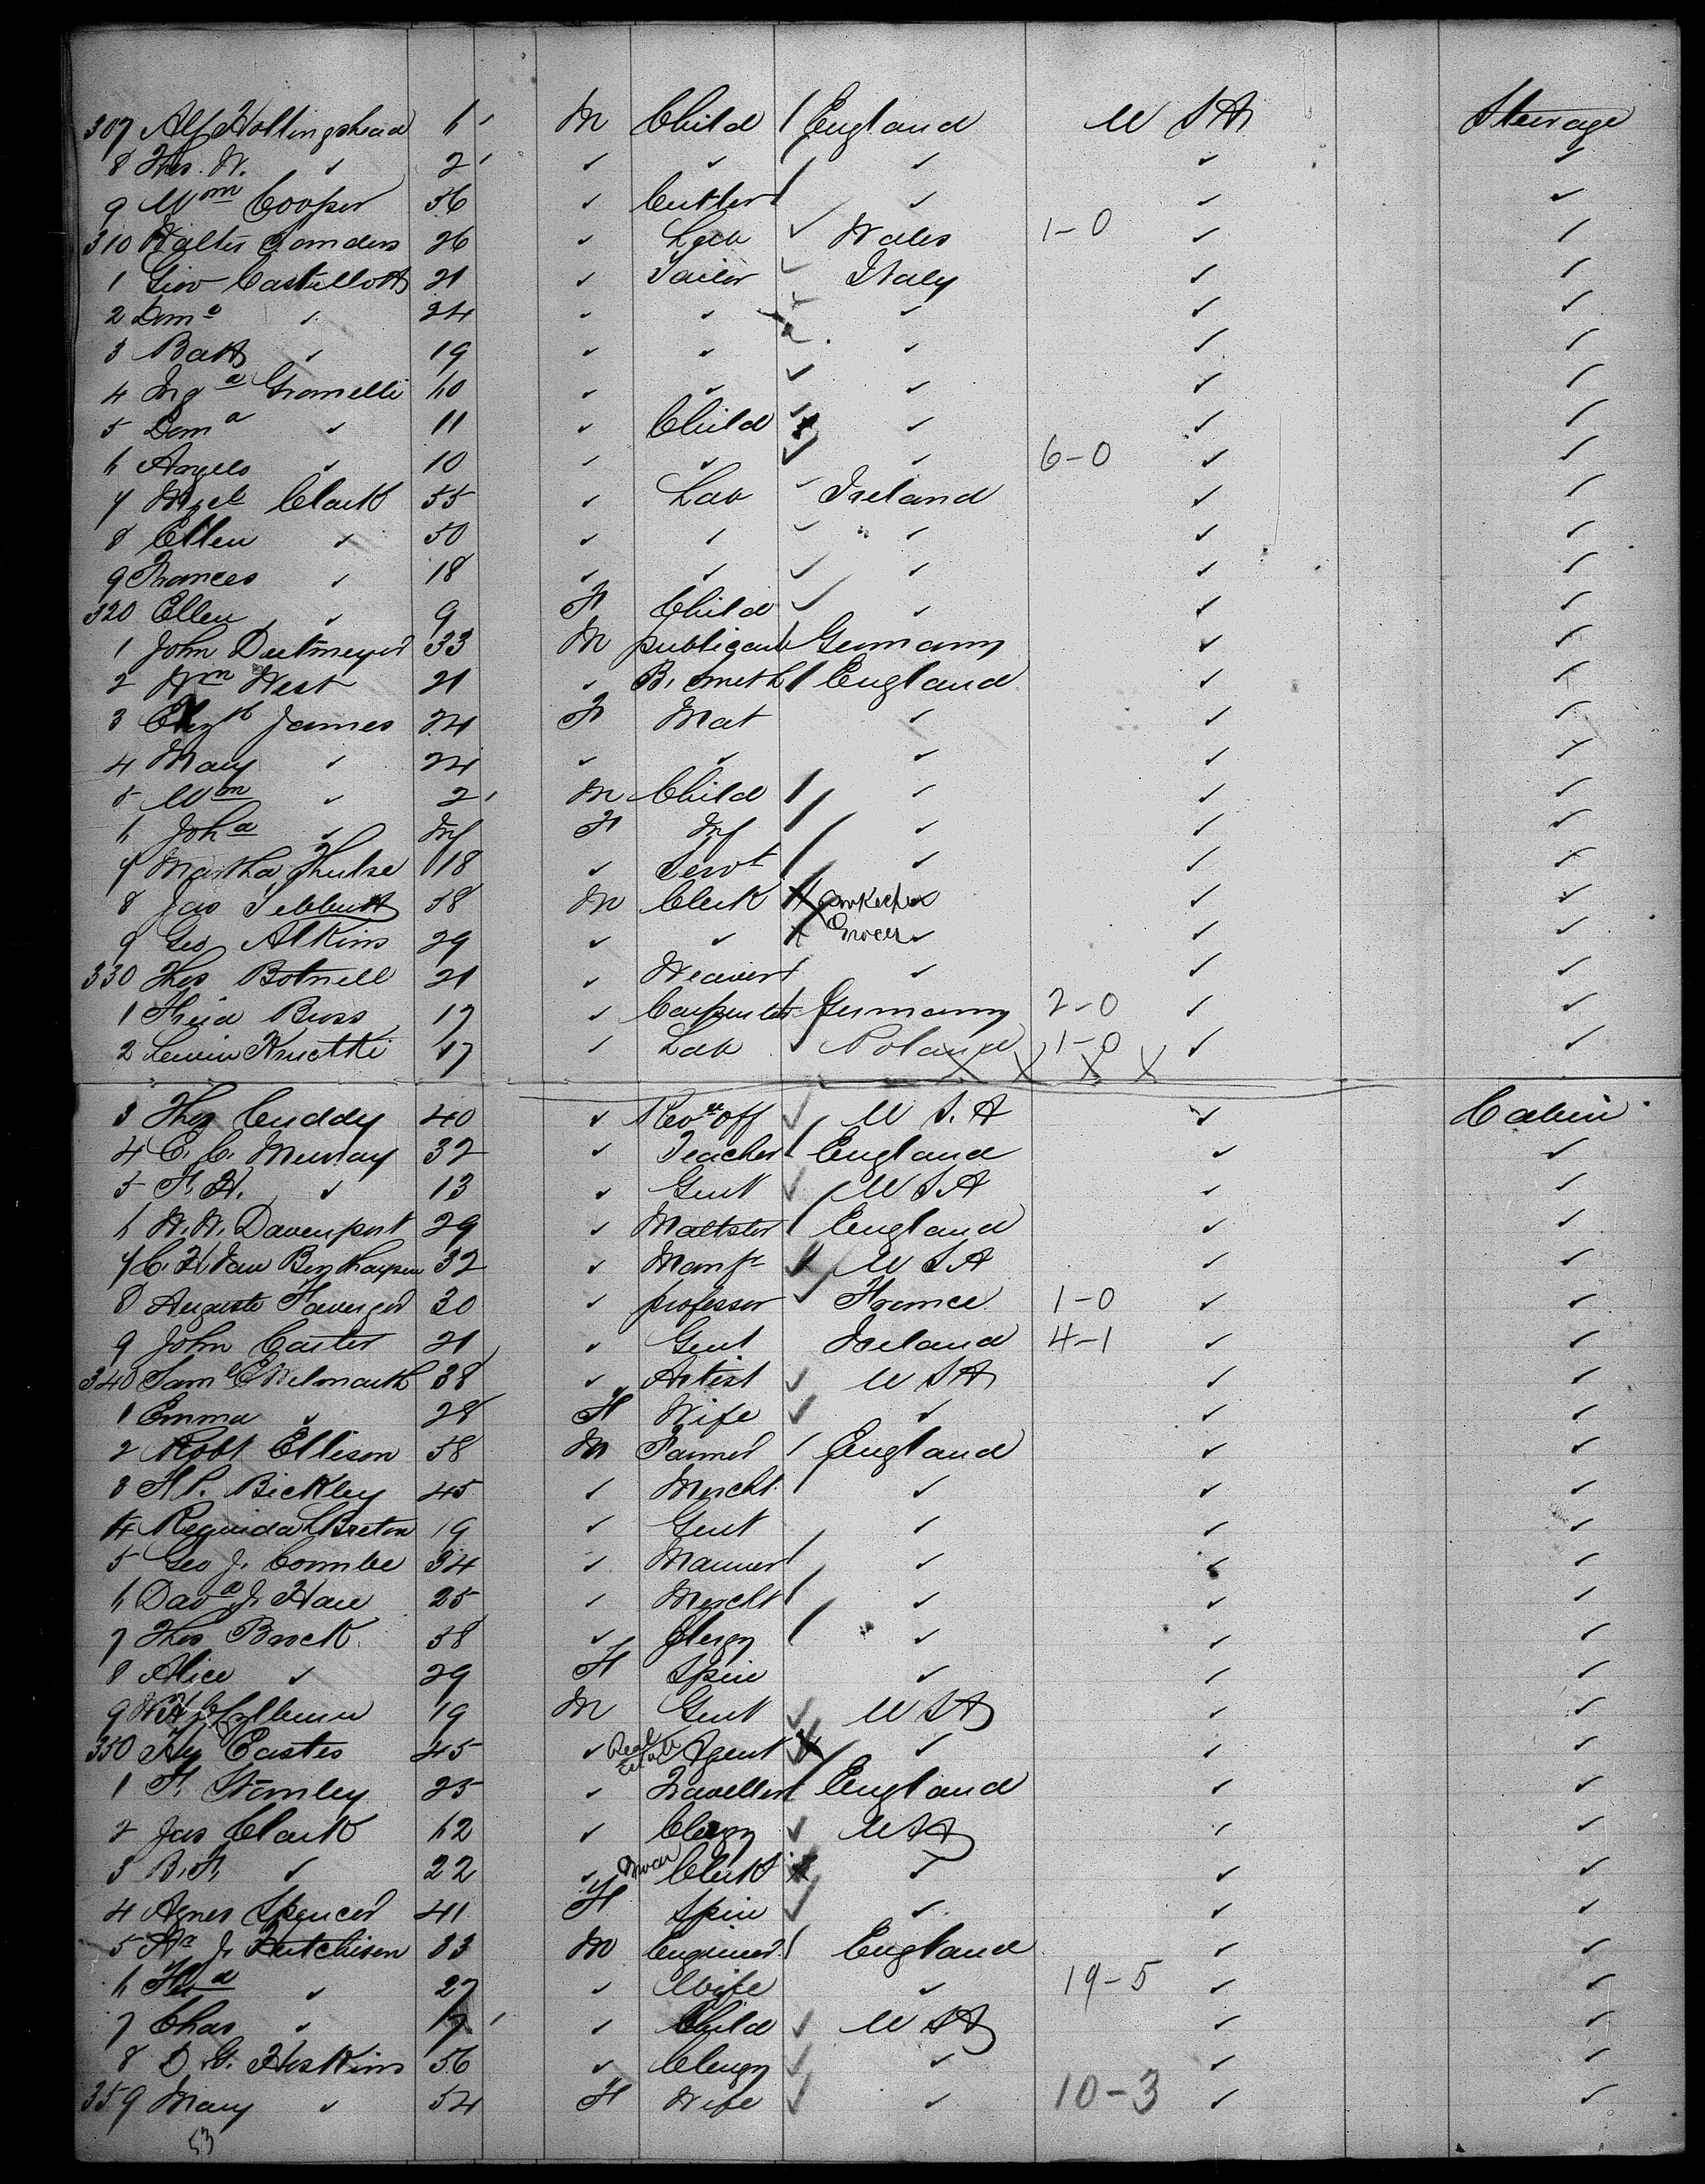 307 Alf Hollingshead 6 M Child England U S A Steerage
8 Thos. W. ✓ 2 ✓ ✓ ✓ ✓ ✓
9 Wm Cooper 56 ✓ Cutler ✓ ✓ ✓
310 Walter Sanders 26 ✓ Lab ✓ Wales 1-0 ✓ ✓
1 Giov Castellott 21 ✓ Tailor ✓ Italy ✓ ✓
2 Domo ✓ 24 ✓ ✓ ✓ ✓ ✓
3 Batt ✓ 19 ✓ ✓ ✓ ✓ ✓
4 Gromelli ✓ ✓ ✓ ✓ ✓
5 Doma ✓ 11 ✓ Child ✓ ✓ ✓
6 Angelo ✓ 10 ✓ ✓ ✓ ✓ 6-0 ✓ ✓
7 Clark 55 ✓ Lab Ireland ✓ ✓
8 Ellen ✓ 50 ✓ ✓ ✓ ✓ ✓
9 Frances ✓ 18 ✓ ✓ ✓ ✓ ✓ ✓
320 Ellen ✓ 9 F Child ✓ ✓ ✓ ✓
1 John Deitmeyer 33 M publican Germany ✓ ✓
2 Wm West 21 ✓ B. Smith England ✓ ✓
3 Elizth James 24 F Mat ✓ ✓ ✓
4 Mary ✓ 24 ✓ ✓ ✓ ✓ ✓
5 Wm ✓ 2 M Child ✓ ✓ ✓
6 Joha ✓ Inf F Inf ✓ ✓ ✓
7 Martha Hulse 18 ✓ Servt ✓ ✓ ✓
8 Jas Tebbutt 58 M Clerk ✓ ✓
9 Geo Atkins 29 ✓ ✓ Grocer ✓ ✓ ✓
330 Thos Botnell 21 ✓ Weaver ✓ ✓ ✓
1 Buss 17 ✓ Carpenter Germany 2-0 ✓ ✓
2 17 ✓ Lab ✓ Poland 1-0 ✓ ✓
X X X X
3 Thos Cuddy 40 ✓ Revue off ✓ U S. A ✓ Cabin
4 E. C. Murray 32 ✓ Teacher England ✓ ✓
5 F. H. ✓ 13 ✓ Gent ✓ U S A ✓ ✓
6 W. W. Davenport 29 ✓ Maltster England ✓ ✓
7 C. H. Van Benthaysen 32 ✓ Manfr U S A ✓ ✓
8 Auguste 30 ✓ professor ✓ France 1-0 ✓ ✓
9 John Carter 21 ✓ Gent Ireland 4-1 ✓ ✓
340 Saml E Wilmarth 38 ✓ Artist ✓ U S A ✓ ✓
1 Emma ✓ 28 F Wife ✓ ✓ ✓ ✓
2 Robt Ellison 58 M Farmer England ✓ ✓
3 H P. Bickley 45 ✓ Mercht ✓ ✓ ✓
4 L Breton 19 ✓ Gent ✓ ✓ ✓
5 Geo J. Coombe 34 ✓ Mariner ✓ ✓ ✓
6 Davd J. Haw 25 ✓ Mercht ✓ ✓ ✓
7 Thos Brock 58 ✓ Clergy ✓ ✓ ✓
8 Alice ✓ 29 F Spin ✓ ✓ ✓
9 19 M Gent ✓ U S A ✓ ✓
350 Hy Eastes 45 ✓ Real Estate Agent ✓ ✓ ✓
1 F. Stanley 25 ✓ Traveller England ✓ ✓
2 Jas Clark 62 ✓ Clergy ✓ U S A ✓ ✓
3 B. F. ✓ 22 ✓ Grocer Clerk ✓ ✓ ✓
4 Agnes Spencer 41 F Spin ✓ ✓ ✓ ✓
5 J. Hutchison 33 M Engineer England ✓ ✓
6 ✓ 27 ✓ Wife ✓ 19-5 ✓ ✓
7 Chas ✓ 7 ✓ Child ✓ U S A ✓ ✓
8 D G. Haskins 56 ✓ Clergy ✓ ✓ ✓ ✓
359 Mary ✓ 54 F Wife ✓ ✓ 10-3 ✓ ✓
53